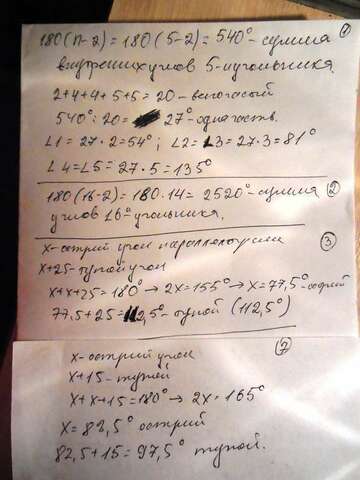 180(n-2)=180(5-2)=540°-сумма ①
внутренних углов 5-иугольника.
2+4+4+5+5=20-всего частей
540°:20= 27°-одна часть.
∠1=27·2=54°; ∠2=∠3=27·3=81°
∠4=∠5=27·5=135°
180(16-2)=180·14=2520°-сумма ②
углов 16-угольника.
③
x-острый угол параллелограмма
x+25-тупой угол
x+x+25=180°→2x=155°→x=77,5°-острый
77,5+25=112,5°-тупой (112,5°)
x-острый угол ⑦
x+15-тупой
x+x+15=180°→2x=165°
x=82,5° острый
82,5+15=97,5° тупой.